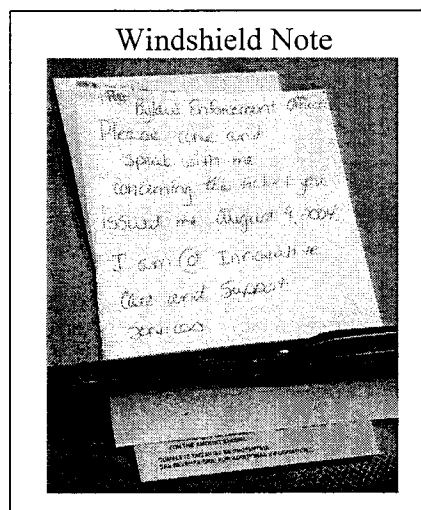 Windshield Note
Bylaw Enforcement Officer
Please come and
speak with me
concerning the ticket you
issued me August 9, 2004.
I am @ Innovative
Care and Support
Services